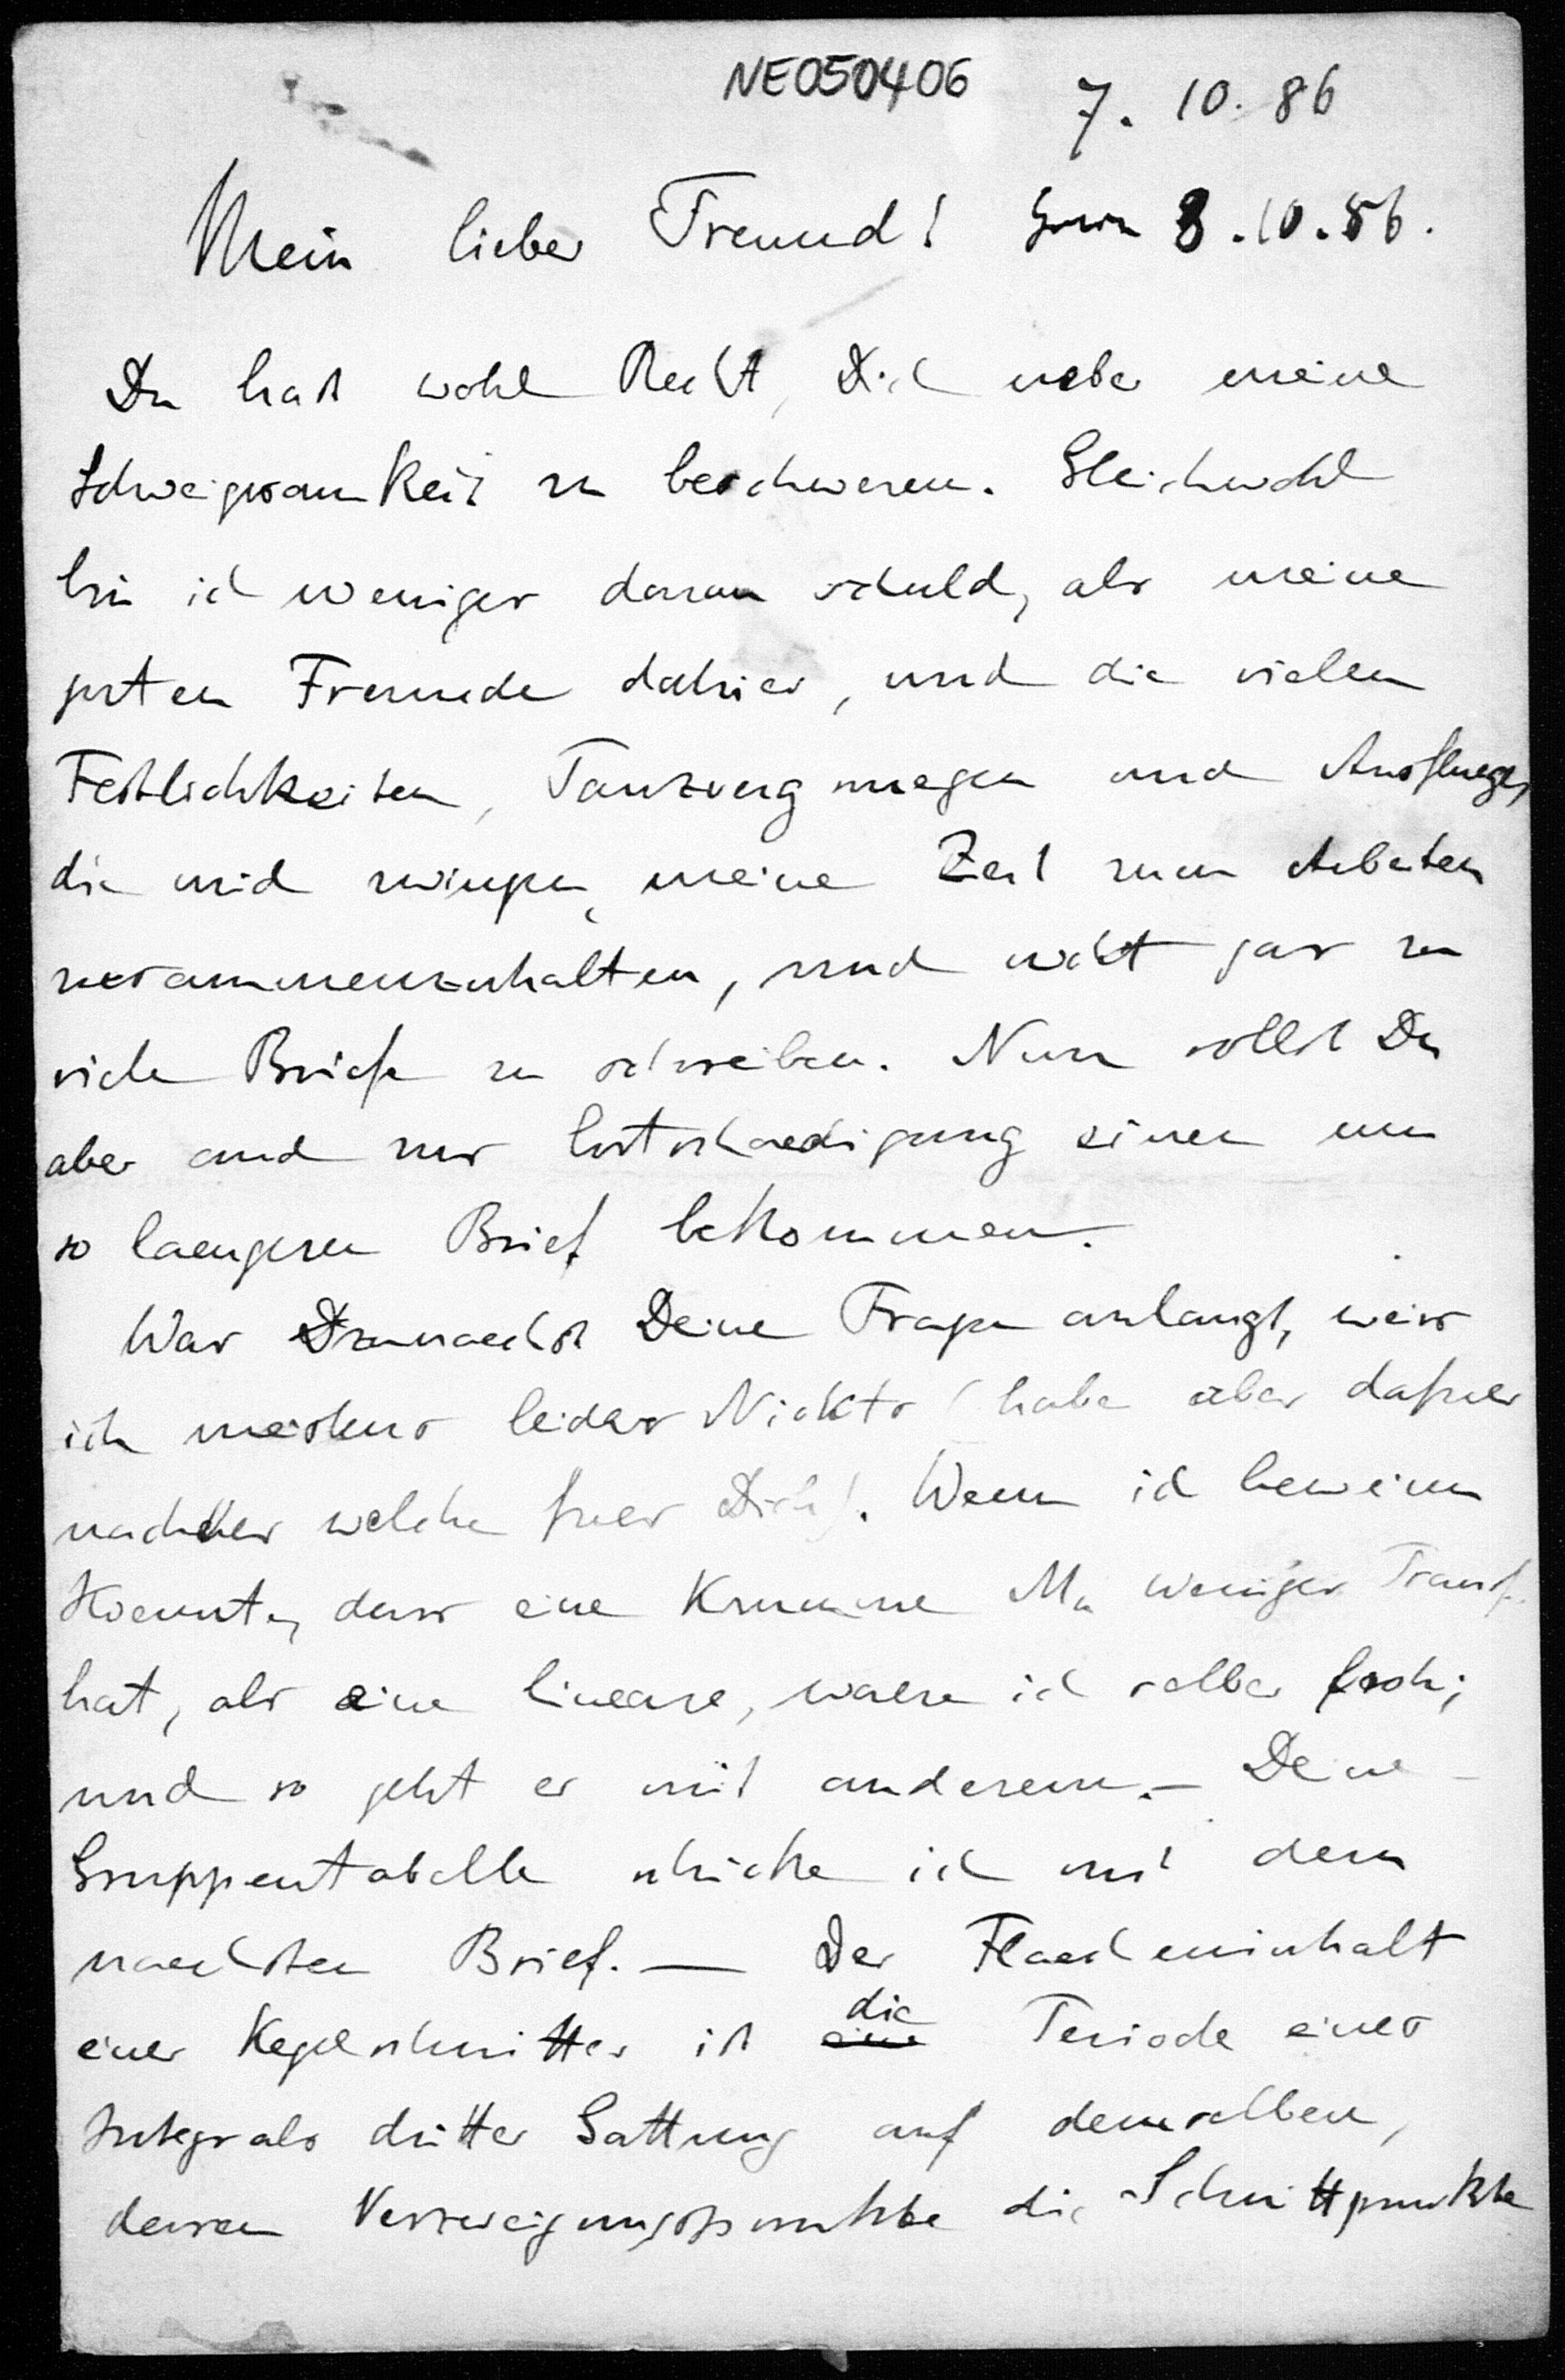 NE050406
7. 10. 86
Mein lieber Freund! 8.10.86.
Du hast wohl Recht, Dich ueber meine
Schweigsamkeit zu beschweren. Gleichwohl
bin ich weniger daran schuld, als meine
guten Freunde dahier, und die vielen
Festlichkeiten, Tanzvergnuegen und Ausfluege,
die mich zwingen, meine Zeit zum Arbeiten
zusammenzuhalten, und nicht gar zu
viele Briefe zu schreiben. Nun sollst Du
aber auch zur Entschaedigung einen um
so laengeren Brief bekommen.
Was Deine Fragen anlangt, weiss
ich meistens leider Nichts (habe aber dafuer
nachher welche fuer Dich). Wenn ich beweisen
koennte, dass eine Kurve M4 weniger Transf.
hat, als eine lineare, waere ich selber froh;
und so geht es mit anderem. - Deine
Gruppentabelle schicke ich mit dem
naechsten Brief. — Der Flaecheninhalt
eines Kegelschnittes ist eine die Periode eines
Integrals dritter Gattung auf demselben,
dessen Verzweigungspunkte die Schnittpunkte